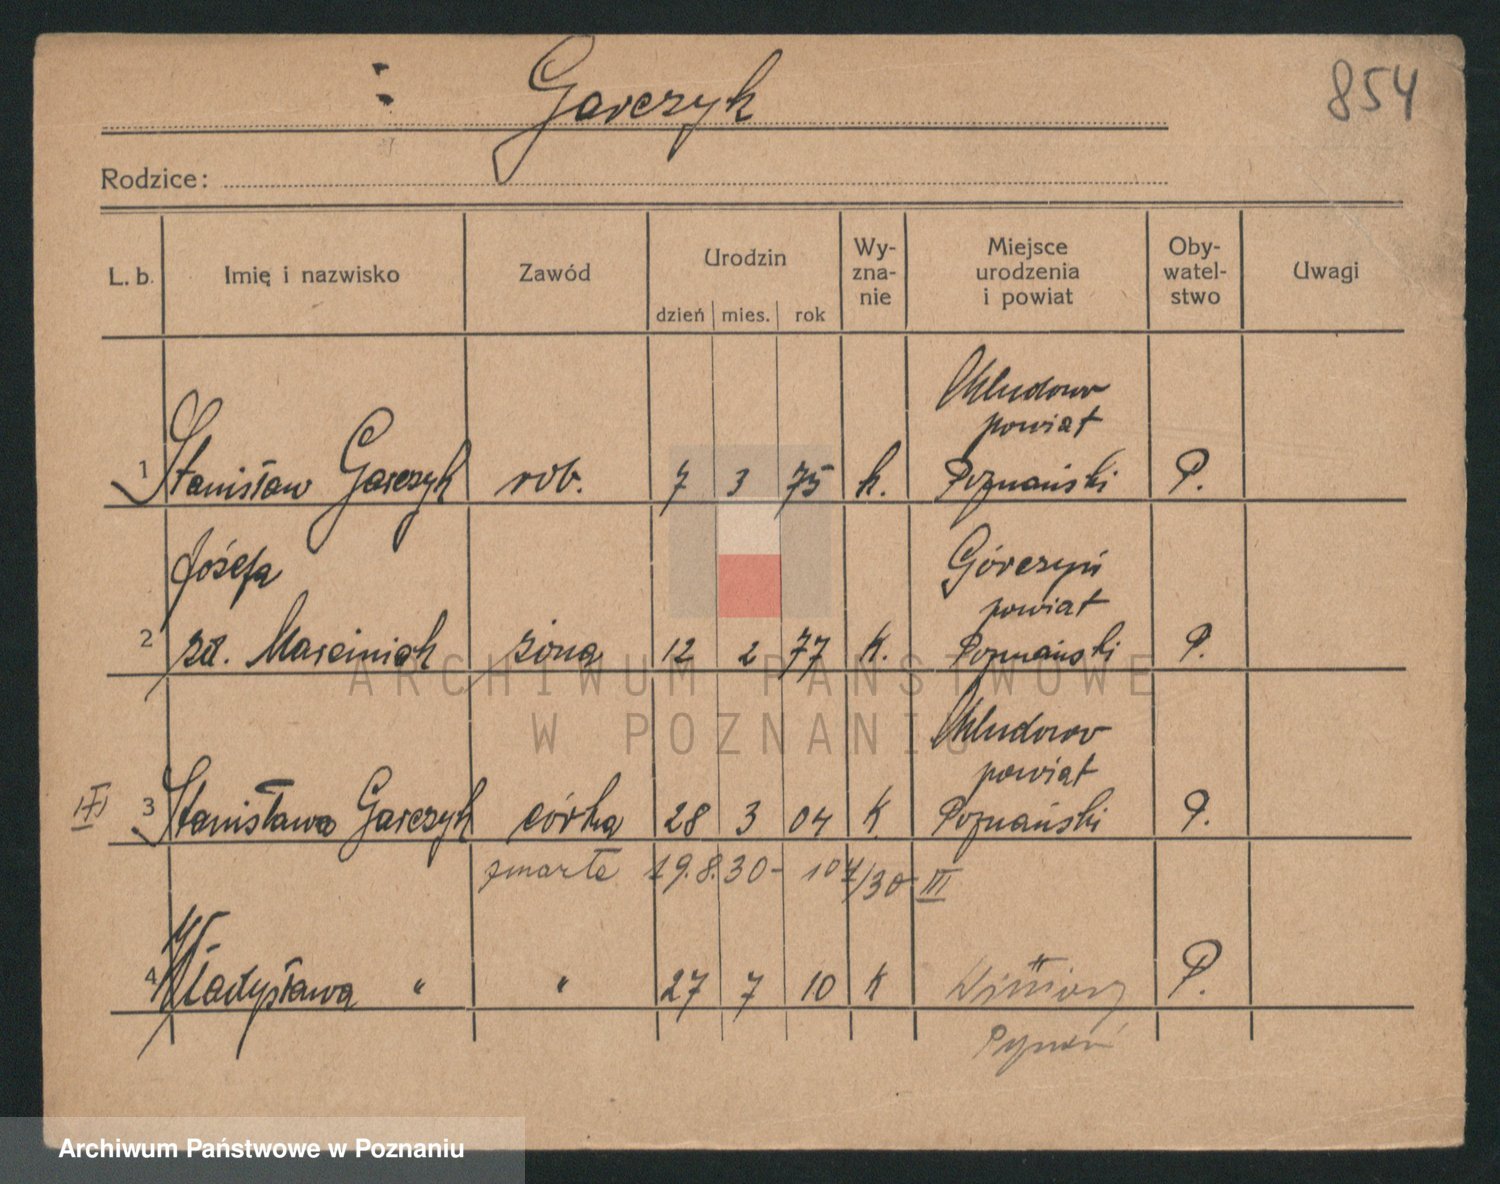 Garczyk
854
Rodzice:
L. b. Imię i nazwisko Zawód Urodzin dzień mies. rok Wy-zna-nie Miejsce urodzenia i powiat Oby-watel-stwo Uwagi
Chludowo
powiat
1 Stanisław Garczyk rob. 7 3 75 k. Poznański P.
Józefa Górczyn
powiat
2 zd. Marciniak żona 12 2 77 K. Poznański P.
Chludowo
powiat
3 Stanisława Garczyk córka 28 3 04 K Poznański P.
zmarła 19.8.30- 104/30 III
4 Władysława " " 27 7 10 K Winiary P.
Poznań
ARCHIWUM PAŃSTWOWE
W POZNANIU
Archiwum Państwowe w Poznaniu